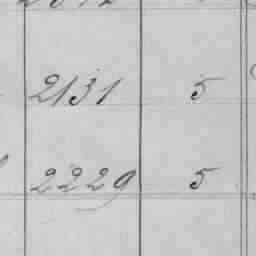 2131 5
2229 5